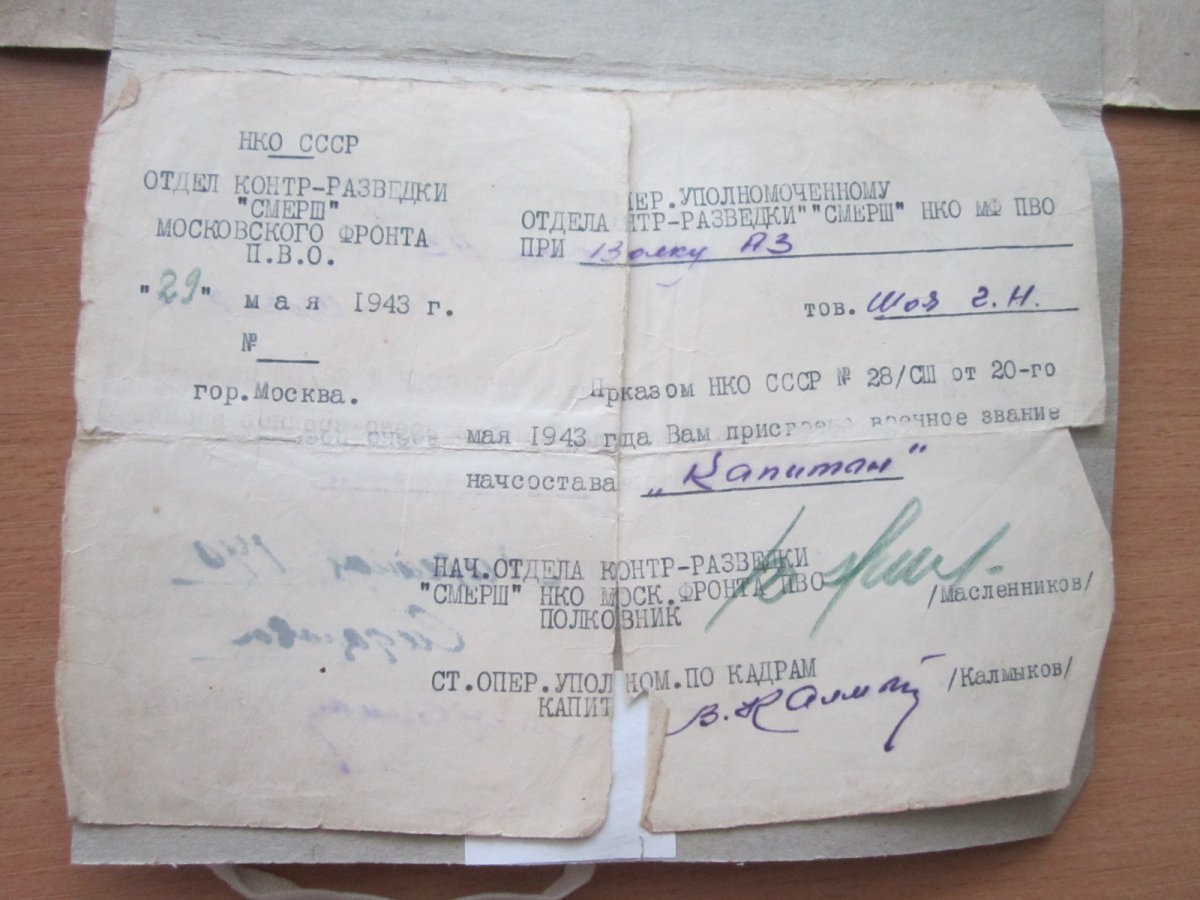 НКО СССР
ОТДЕЛ КОНТР-РАЗВЕДКИ
"СМЕРШ"
МОСКОВСКОГО ФРОНТА
П.В.О.
"29" мая 1943 г.
№
гор.Москва.
ПЕР.УПОЛНОМОЧЕННОМУ
ОТДЕЛА НТР-РАЗВЕДКИ""СМЕРШ" НКО МФ ПВО
ПРИ 13 полку АЗ
тов. Шоя Г.Н.
Прказом НКО СССР № 28/СШ от 20-го
мая 1943 гда Вам звание
начсостава "Капитан"
НАЧ.ОТДЕЛА КОНТР-РАЗВЕДКИ
"СМЕРШ" НКО МОСК.ФРОНТА ПВО
ПОЛКОВНИК /Масленников/
СТ.ОПЕР.УПОЛНОМ.ПО КАДРАМ
КАПИТ В. Калмы /Калмыков/